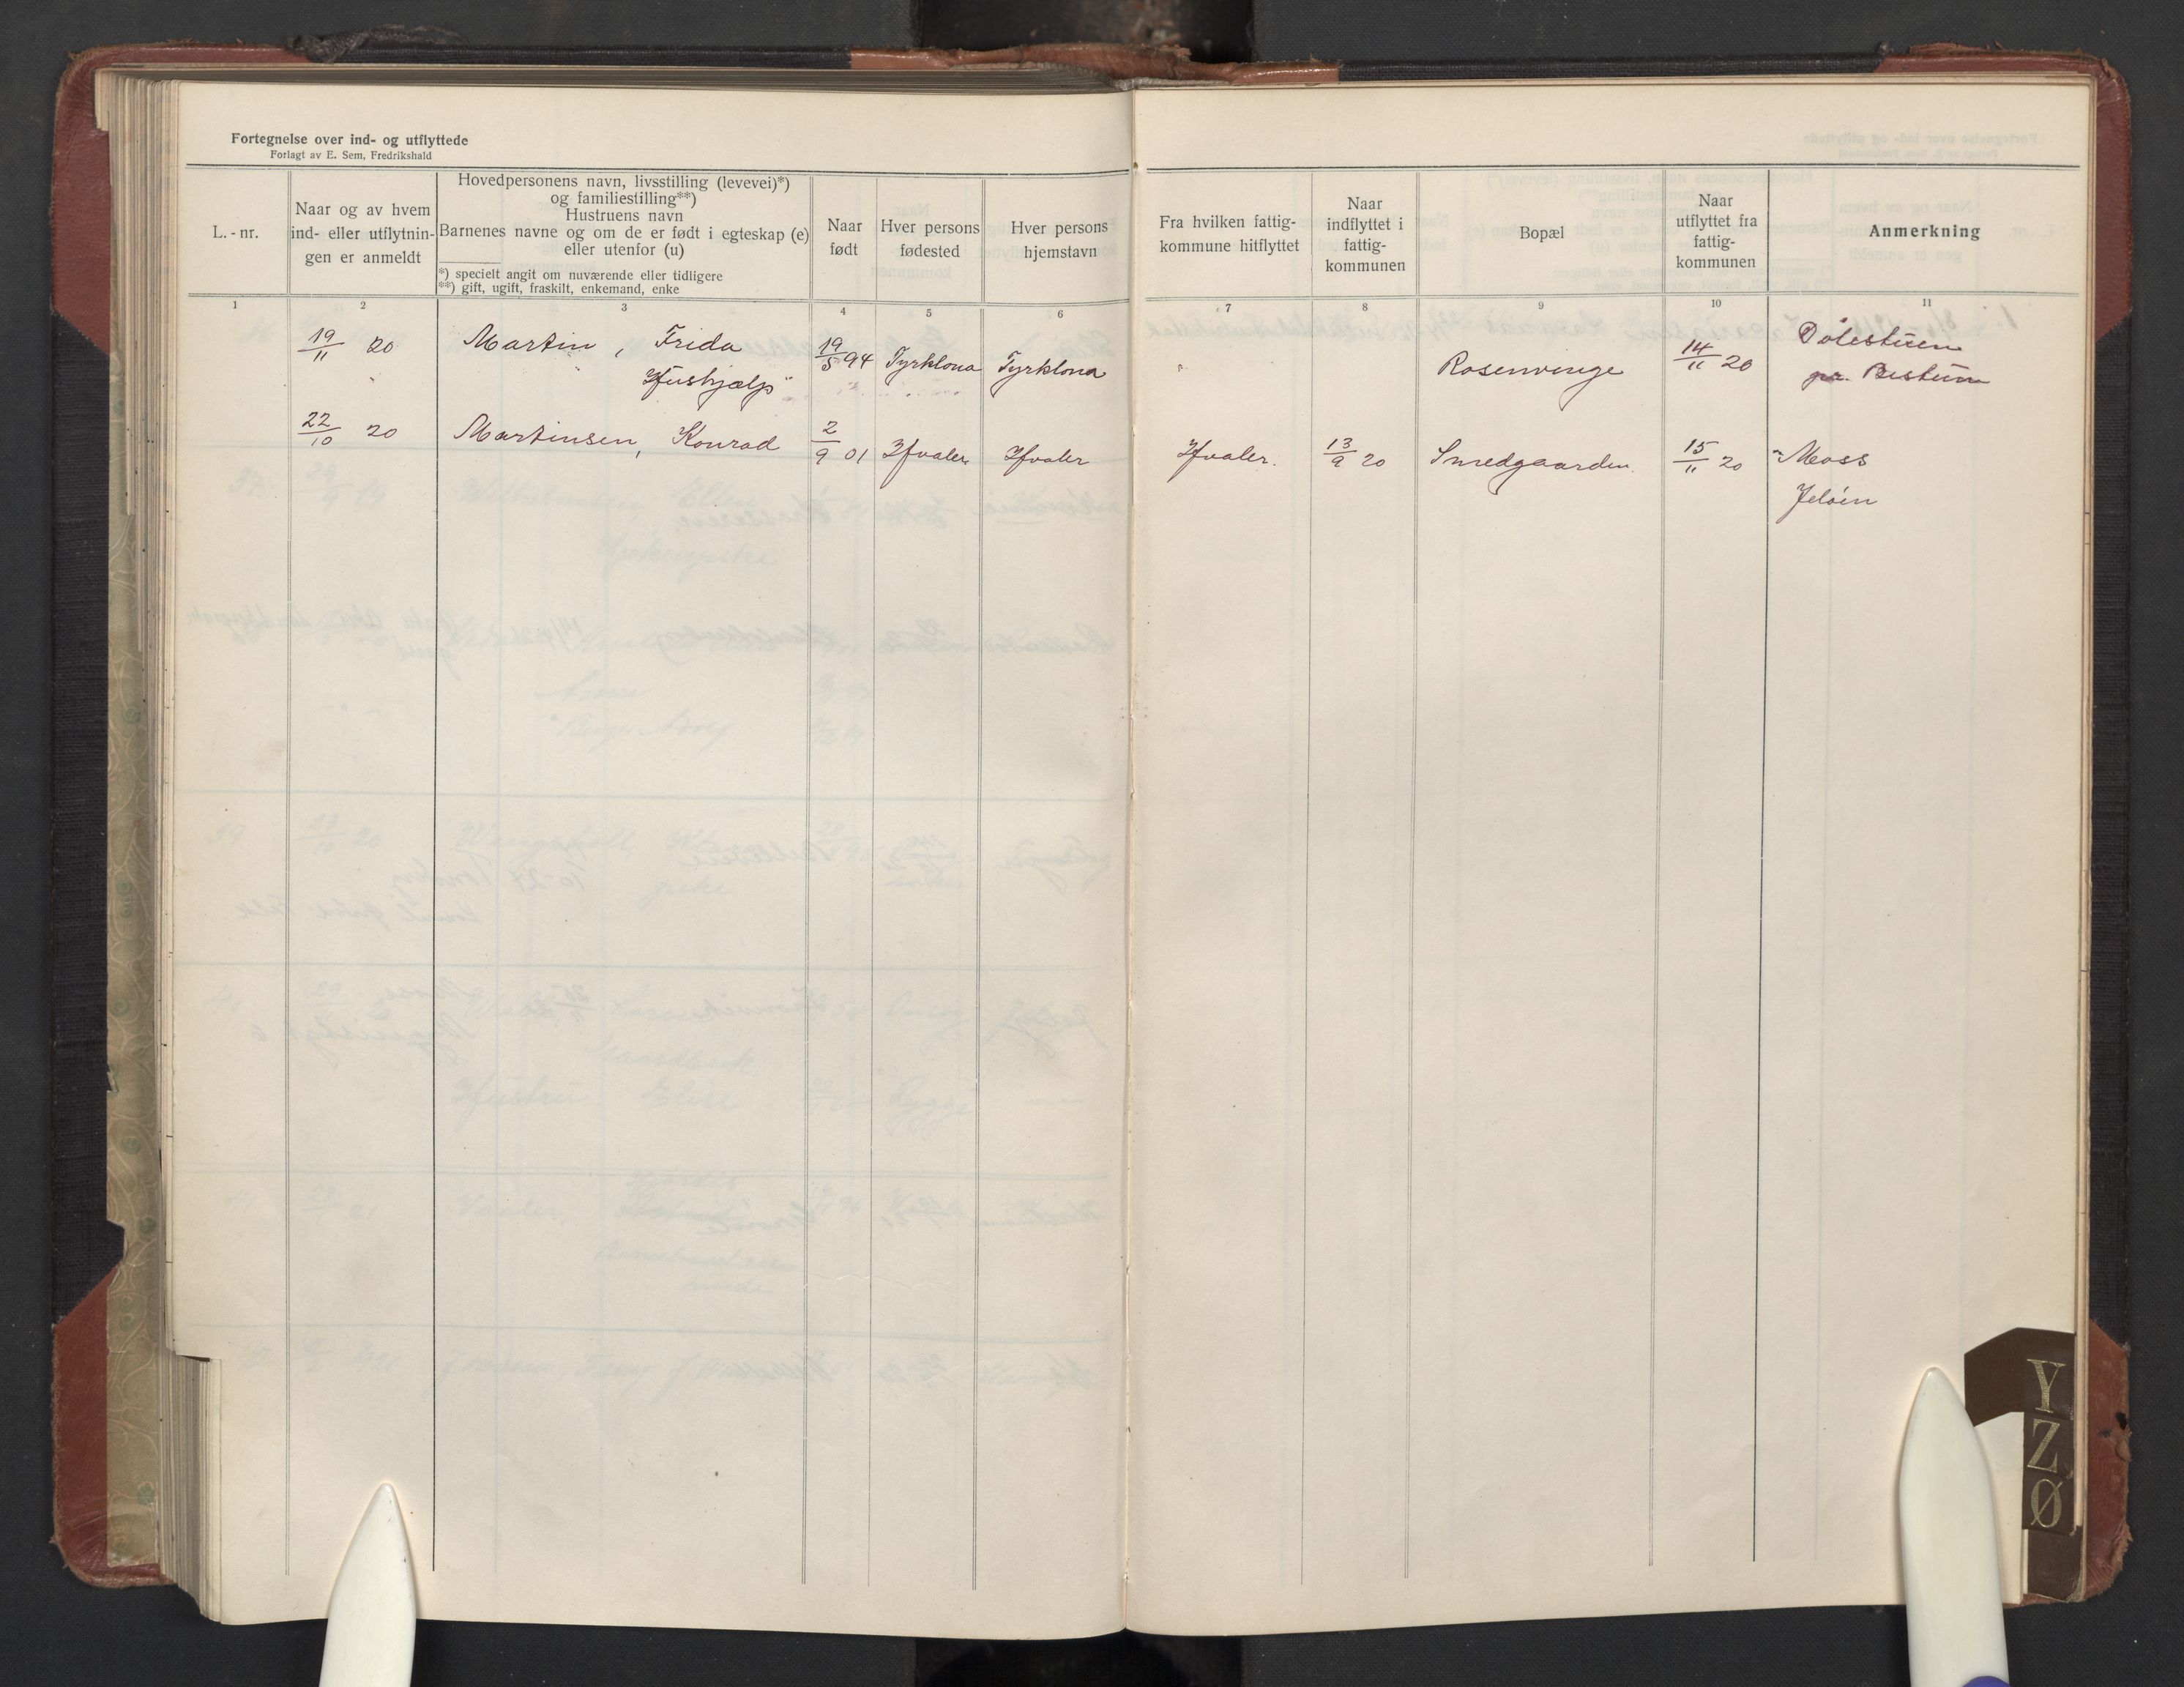 Fortegnelse over ind- og utflyttede
Forlagt av E. Sem, Fredrikshald
L. - nr.
Naar og av hvem
ind- eller utflytnin-
gen er anmeldt
Hovedpersonens navn, livsstilling (levevei)*)
og familiestilling**)
Hustruens navn
Barnenes navne og om de er født i egteskap (e)
eller utenfor (u)
*) specielt angit om nuværende eller tidligere
**) gift, ugift, fraskilt, enkemand, enke
Naar
født
Hver persons
fødested
Hver persons
hjemstavn
Fra hvilken fattig-
kommune hitflyttet
Naar
indflyttet i
fattig-
kommunen
Bopæl
Naar
utflyttet fra
fattig-
kommunen
Anmerkning
1 2 3 4 5 6 7 8 9 10 11
19/11 20 Martin, Frida 19/5 94 Tyrklona Tyrklona Rosenvinge 14/11 20
Hushjælp pr. Bestum
22/10 20 Martinsen, Konrad 2/9 01 Hvaler Hvaler Hvaler. 13/9 20 Smedgaarden. 15/11 20 Moss
Jeløen
Y
Z
Ø